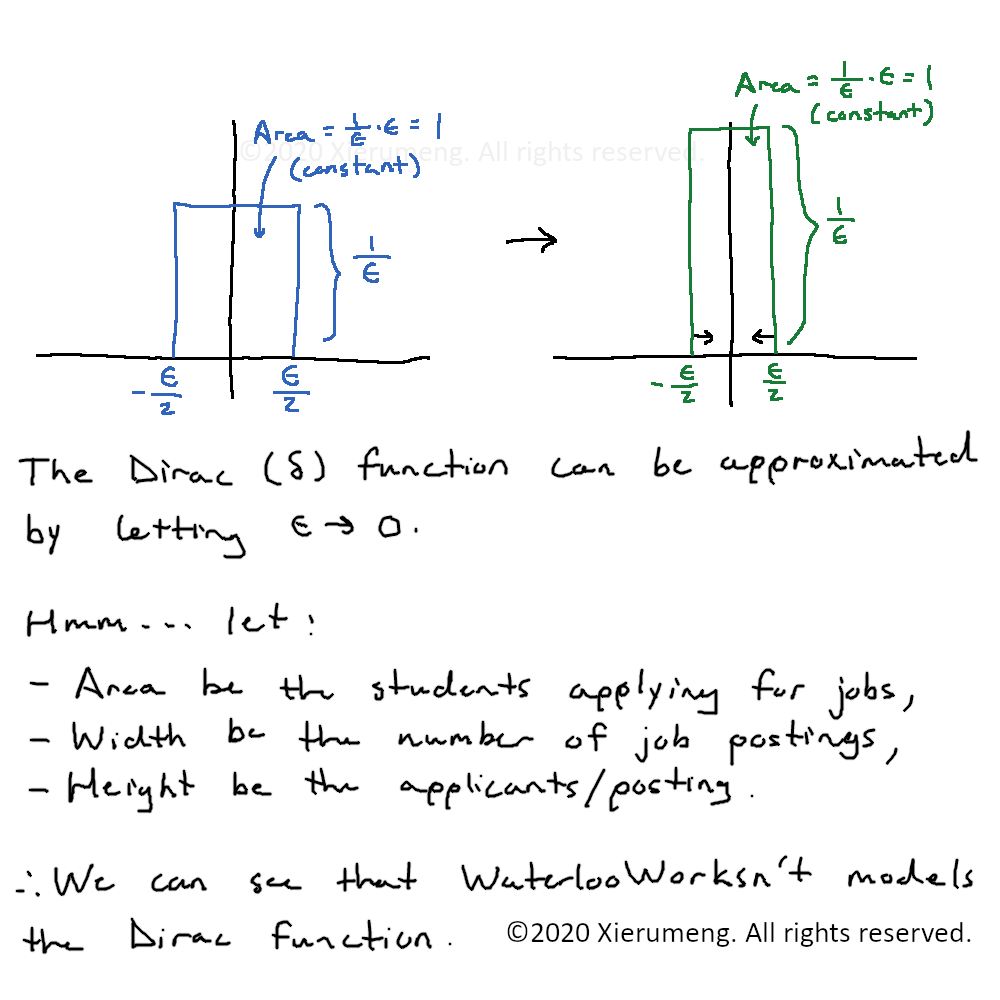 Area = 1/ϵ · ϵ = 1
(constant)
©2020 Xierumeng. All rights reserved.
1/ϵ
-ϵ/2
ϵ/2
→
Area = 1/ϵ · ϵ = 1
(constant)
1/ϵ
-ϵ/2
ϵ/2
The Dirac (δ) function can be approximated
by letting ϵ → 0.
Hmm... let:
- Area be the students applying for jobs,
- Width be the number of job postings,
- Height be the applicants/posting.
∴ We can see that WaterlooWorksn't models
the Dirac function.
©2020 Xierumeng. All rights reserved.